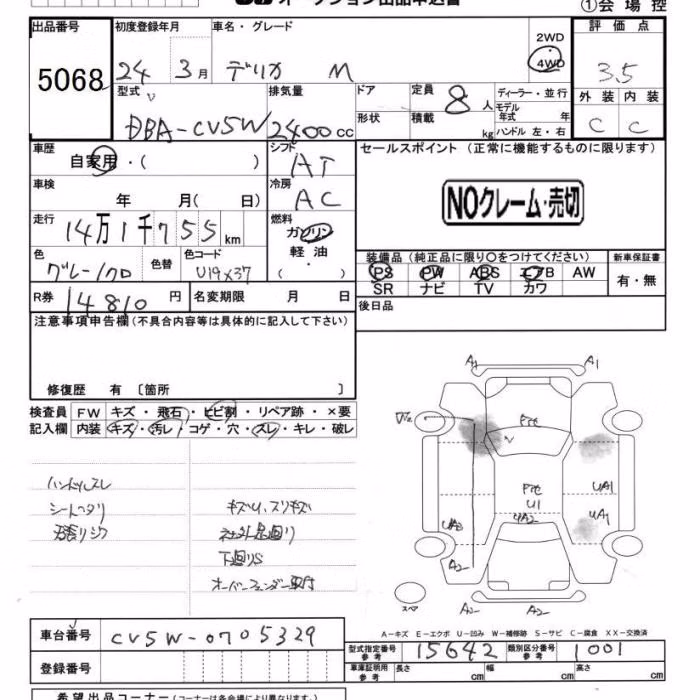 オークション出品申込書
①会場控
出品番号
5068
初度登録年月
24 3月
車名・グレード
デリカ M
2WD
4WD
評価点
3.5
外装 内装
C C
型式
DBA-CV5W
排気量
2400cc
ドア
形状
定員 8人
積載 kg
ディーラー・並行
モデル年式 年
ハンドル 左・右
車歴
自家用・( )
シフト
AT
セールスポイント (正常に機能するものに限ります)
NOクレーム・売切
車検
年 月( 日)
冷房
AC
走行
14万1千755km
燃料
ガソリン
軽油
( ・ )
色
グレー/クロ
色替
色コード
U19X37
装備品(純正品に限り○をつけてください)
PS PW ABS エアB AW
SR ナビ TV カワ
新車保証書
有・無
R券 14810円
名変期限 月 日
後日品
注意事項申告欄(不具合内容等は具体的に記入して下さい)
修復歴 有〔箇所 〕
検査員 FW キズ・飛石・ヒビ割・リペア跡・×要
記入欄 内装 キズ・汚レ・コゲ・穴・スレ・キレ・破レ
ハンドルスレ
シートヘタリ
キズU、スリキズ
下廻りS
オーバーフェンダー取付
A1 A1
U1
UA2
UA1
UA1
A2
スペア
A2
A-キズ E-エクボ U-凹み W-補修跡 S-サビ C-腐食 XX-交換済
車台番号 CV5W-0705329
登録番号
型式指定番号 参考 15642
類別区分番号 参考 1001
車庫証明用 参考 長さ cm 幅 cm 高さ cm
希望出品コーナー(コーナーは各会場により異なります)